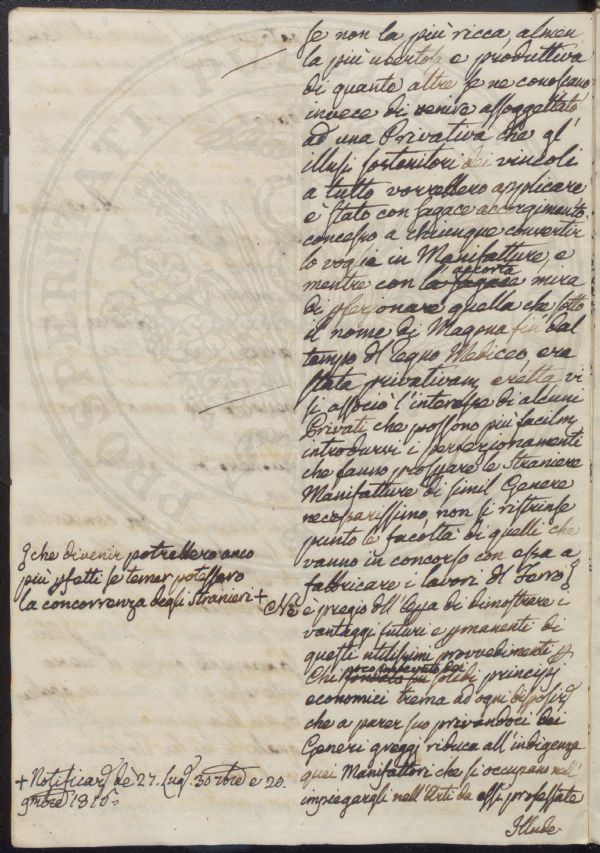 se non la più ricca, almen
la più ubertosa e produttiva
di quante altre se ne conoscano
invece di venire assoggettato
ad una Privativa che gl'
illusi sostenitori dei vincoli
a tutto vorrebbero applicare
è stato con sagace accorgimento
concesso a chiunque convertir
lo voglia in Manifatture, e
mentre con l'accorta mira
di pfezionare quella che sotto
il nome di Magona fin dal
tempo dl Regno Mediceo, era
stata privativam. eretta vi
si associò l'interesse di alcuni
Privati che possono più facilm.
introdurvi i perfezionamenti
che fanno prosperare le straniere
Manifatture di simil Genere
necessarissimo, non si ristrinse
punto le facoltà di quelli che
vanno in concorso con essa a
fabbricare i lavori dl Ferro
che divenir potrebbero anco
più pfetti se temer potessero
la concorrenza degli stranieri +
è pregio dll' di dimostrare i
vantaggi futuri e pmanenti di
questi utilissimi provvedimenti
Chi poco penetrato dai solidi principj
economici trema ad ogni disposizi.
che a parer suo privandoci dei
Generi greggi riduca all'indigenza
quei Manifattori che si occupano nell'
impiegargli nell'Arti da essi professate
Illude
+ Notificaz. de 27. Lug. 30 e 20.
9mbre